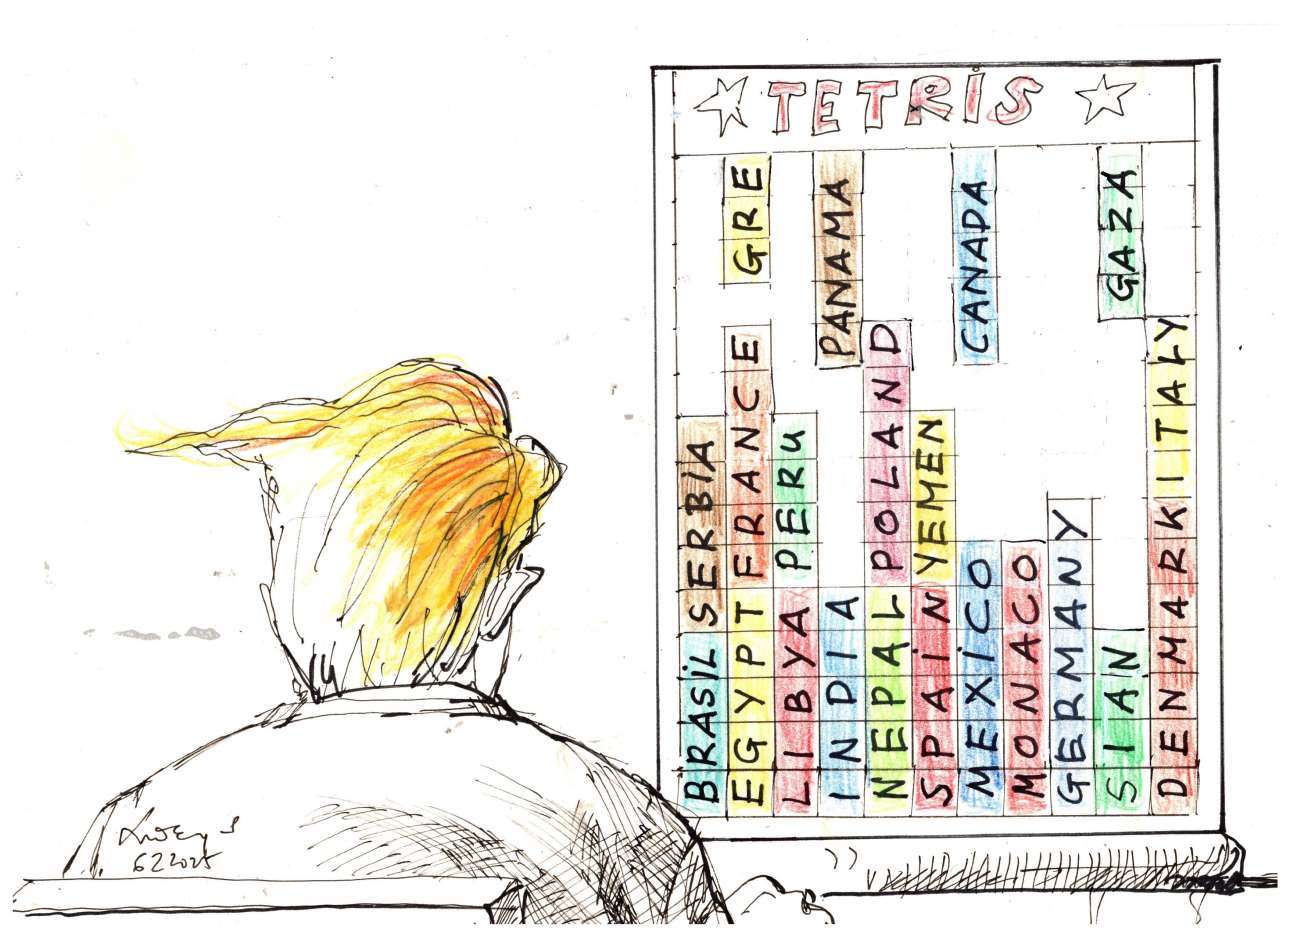 TETRIS
BRASIL
SERBIA
EGYPT
FRANCE
GRE
LIBYA
PERU
INDIA
PANAMA
NEPAL
POLAND
SPAİN
YEMEN
MEXİCO
CANADA
MONACO
GERMANY
SIAN
GAZA
DENMARK
ITALY
6 2 2025